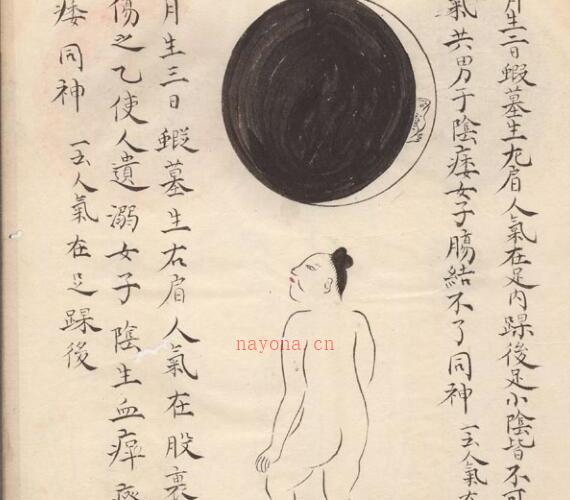 月生二日蝦墓生左肩人氣在足內踝後足小陰皆不可
氣共男子陰痿女子腸結不了同神 一云人氣在
月生三日蝦墓生右肩人氣在股裏
傷之乙使人遺溺女子陰生血痺
痿同神 一云人氣在足踝後
nayona.cn